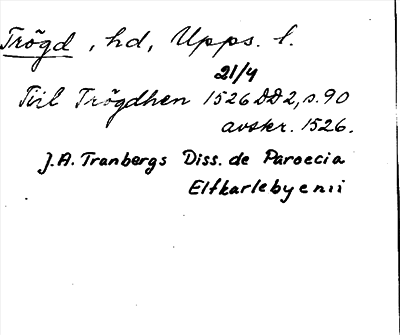 Trögd, hd, Upps. l.
21/4
Till Trögdhen 1526 DD2, s. 90
avskr. 1526.
J.A. Tranbergs Diss. de Paroecia
Elfkarlebyenii